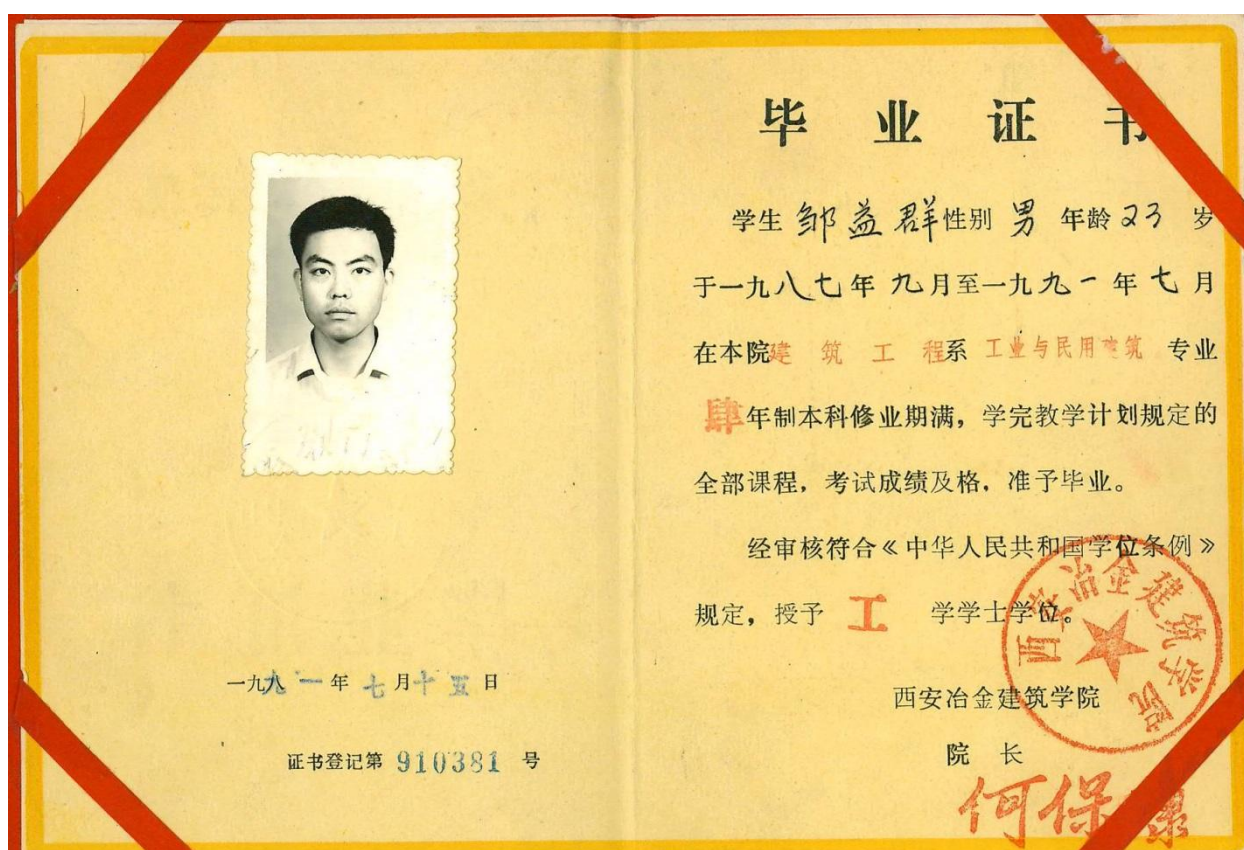 一九九一年七月十五日
证书登记第 910381 号
毕业证书
学生 邹益群 性别 男 年龄 23 岁
于一九八七年九月至一九九一年七月
在本院建筑工程系 工业与民用建筑 专业
肆年制本科修业期满，学完教学计划规定的
全部课程，考试成绩及格，准予毕业。
经审核符合《中华人民共和国学位条例》
规定，授予 工 学学士学位。
西安冶金建筑学院
西安冶金建筑学院
院长
何保康